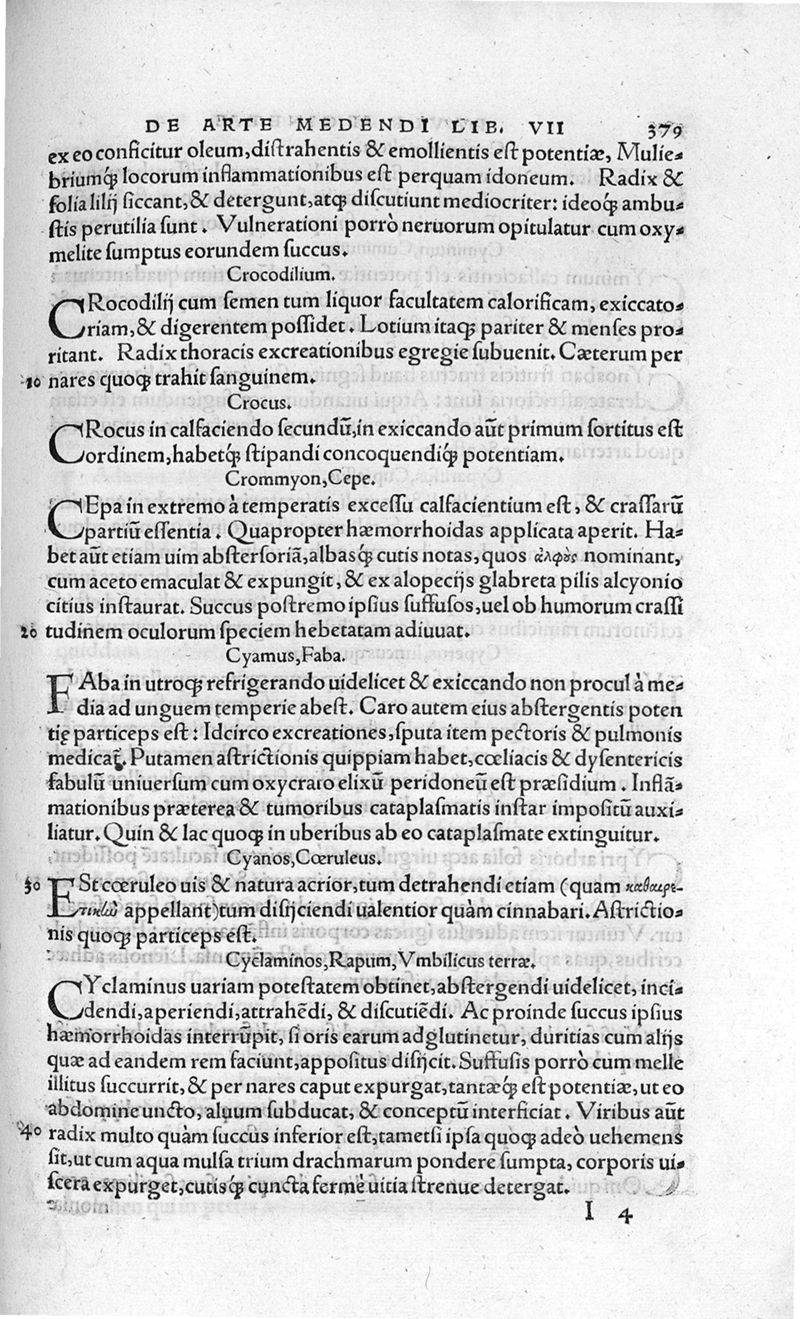 DE ARTE MEDENDI LIB. VII 379
ex eo conficitur oleum, diſtrahentis & emollientis eſt potentiæ, Mulie-
briumq́; locorum inflammationibus eſt perquam idoneum. Radix &
folia lilij ſiccant, & detergunt, atq; diſcutiunt mediocriter: ideoq́; ambu-
ſtis perutilia ſunt. Vulnerationi porrò neruorum opitulatur cum oxy-
melite ſumptus eorundem ſuccus.
Crocodilium.
CRocodilij cum ſemen tum liquor facultatem calorificam, exiccato-
riam, & digerentem poſſidet. Lotium itaq; pariter & menſes pro-
ritant. Radix thoracis excreationibus egregie ſubuenit. Cæterum per
10 nares quoq; trahit ſanguinem.
Crocus.
CRocus in calfaciendo ſecundũ, in exiccando aũt primum ſortitus eſt
ordinem, habetq́; ſtipandi concoquendiq́; potentiam.
Crommyon, Cepe.
CEpa in extremo à temperatis exceſſu calfacientium eſt, & craſſarũ
partiũ eſſentia. Quapropter hæmorrhoidas applicata aperit. Ha-
bet aũt etiam uim abſterſoriã, albasq́; cutis notas, quos ἀλφὸς nominant,
cum aceto emaculat & expungit, & ex alopecijs glabreta pilis alcyonio
citius inſtaurat. Succus poſtremo ipſius ſuffuſos, uel ob humorum craſſi
20 tudinem oculorum ſpeciem hebetatam adiuuat.
Cyamus, Faba.
FAba in utroq; refrigerando uidelicet & exiccando non procul à me-
dia ad unguem temperie abeſt. Caro autem eius abſtergentis poten
tię particeps eſt: Idcirco excreationes, ſputa item pectoris & pulmonis
medicat̃. Putamen aſtrictionis quippiam habet, cœliacis & dyſentericis
fabulũ uniuerſum cum oxycrato elixũ peridoneũ eſt præſidium. Inflã-
mationibus præterea & tumoribus cataplaſmatis inſtar impoſitũ auxi-
liatur. Quin & lac quoq; in uberibus ab eo cataplaſmate extinguitur.
Cyanos, Cœruleus.
30 ESt cœruleo uis & natura acrior, tum detrahendi etiam (quam καθαιρε-
τικὼ appellant) tum diſijciendi ualentior quàm cinnabari. Aſtrictio-
nis quoq; particeps eſt.
Cyclaminos, Rapum, Vmbilicus terræ.
CYclaminus uariam poteſtatem obtinet, abſtergendi uidelicet, inci-
dendi, aperiendi, attrahẽdi, & diſcutiẽdi. Ac proinde ſuccus ipſius
hæmorrhoidas interrũpit, ſi oris earum adglutinetur, duritias cum alijs
quæ ad eandem rem faciunt, appoſitus diſijcit. Suffuſis porrò cum melle
illitus ſuccurrit, & per nares caput expurgat, tantæq́; eſt potentiæ, ut eo
abdomine uncto, aluum ſubducat, & conceptũ interficiat. Viribus aũt
40 radix multo quàm ſuccus inferior eſt, tametſi ipſa quoq; adeò uehemens
ſit, ut cum aqua mulſa trium drachmarum pondere ſumpta, corporis ui-
ſcera expurget, cutisq́; cuncta ferme uitia ſtrenue detergat.
I 4